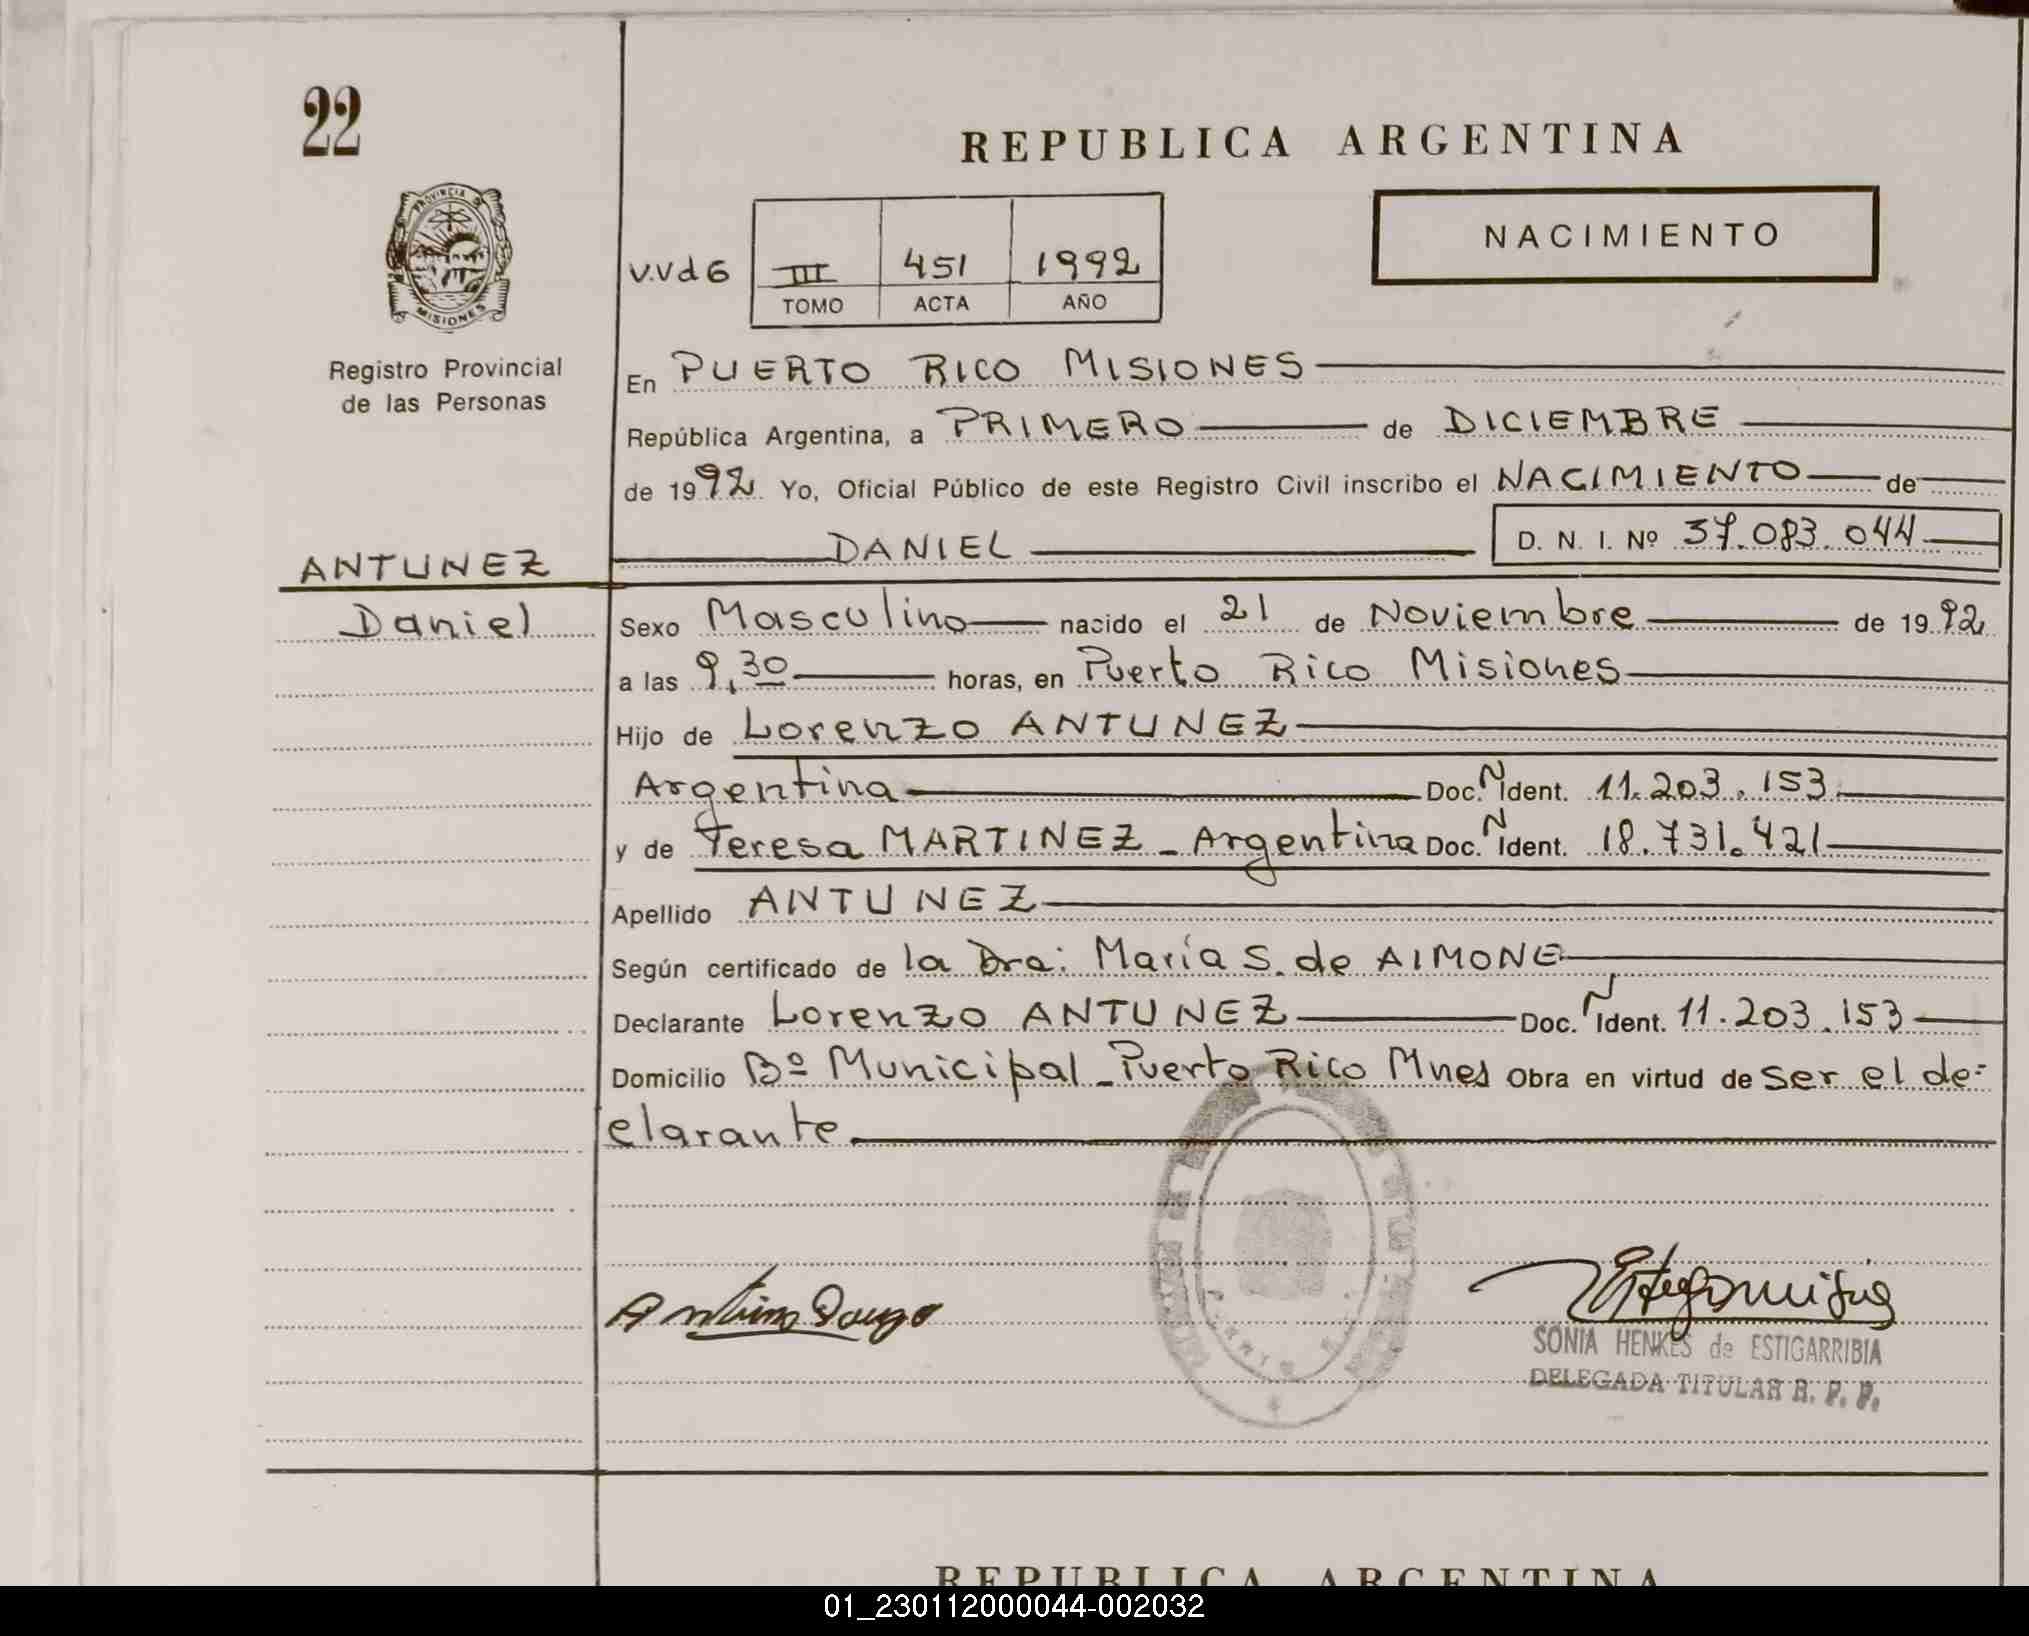 22
REPUBLICA ARGENTINA
PROVINCIA DE
MISIONES
NACIMIENTO
V.Vd6 III 451 1992
TOMO ACTA AÑO
Registro Provincial
de las Personas
En PUERTO RICO MISIONES
República Argentina, a PRIMERO de DICIEMBRE
de 1992 Yo, Oficial Público de este Registro Civil inscribo el NACIMIENTO de
DANIEL D. N. I. Nº 37.083.044
ANTUNEZ
Daniel
Sexo Masculino nacido el 21 de Noviembre de 1992
a las 9,30 horas, en Puerto Rico Misiones
Hijo de Lorenzo ANTUNEZ
Argentina Doc. N Ident. 11.203.153
y de Teresa MARTINEZ - Argentina Doc. N Ident. 18.731.421
Apellido ANTUNEZ
Según certificado de la Dra: María S. de AIMONE
Declarante Lorenzo ANTUNEZ Doc. N Ident. 11.203.153
Domicilio Bº Municipal - Puerto Rico Mnes Obra en virtud de ser el de=
clarante
SONIA HENKES de ESTIGARRIBIA
DELEGADA TITULAR R. P. P.
REPUBLICA ARGENTINA
01_230112000044-002032